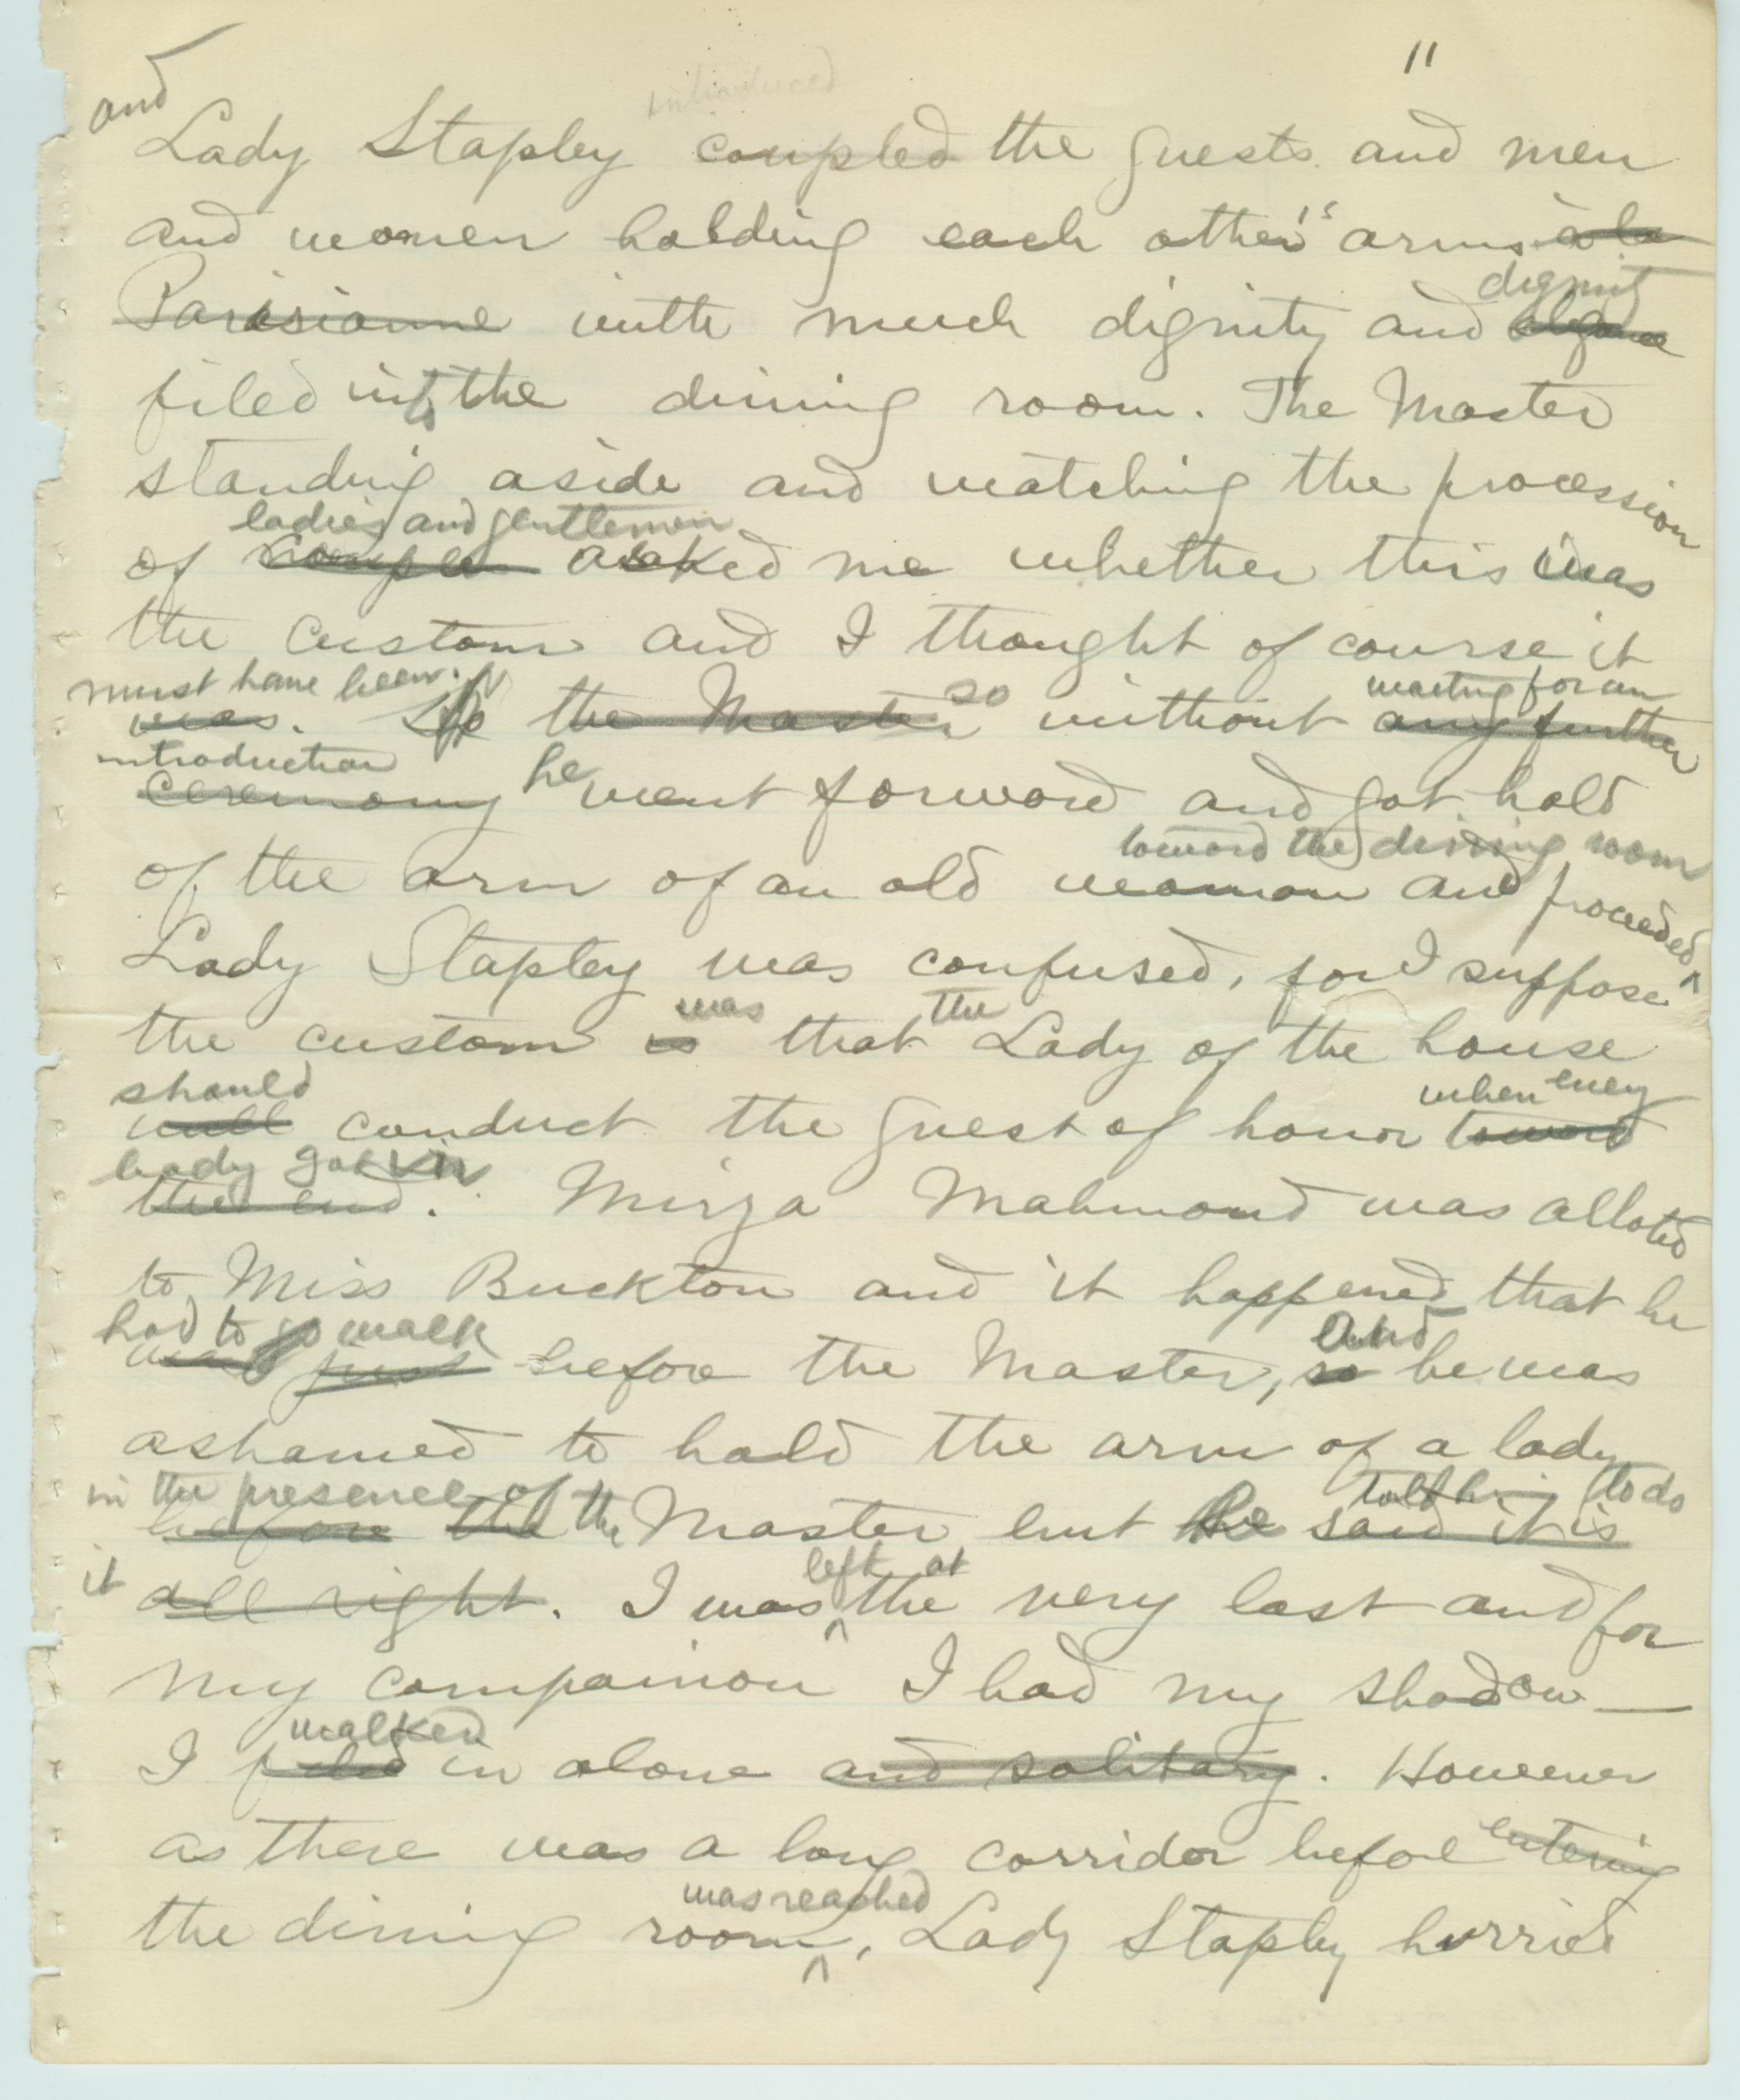 11
and
introduced
Lady Stapley coupled the guests and men
and women holding each other's arms a la
dignit
Parisianne with much dignity and elegance
filed into the dining room. The Master
standing aside and watching the procession
ladies and gentlemen
of couples asked me whether this was
the custom and I thought of course it
must have been. so waiting for an
was. the Master without any further
introduction he
ceremony went forward and got hold
toward the dining room
of the arm of an old woman and proceeded
Lady Stapley was confused, for I suppose
was the
the custom is that Lady of the house
should when every
will conduct the guest of honor toward
body got in
the end. Mirza Mahmoud was alloted
to Miss Buckton and it happened that he
had to go walk and
was just before the Master, so he was
ashamed to hold the arm of a lady
in the presence of the told him to do
before the Master but He said it is
it left at
all right. I was the very last and for
my compainion I had my shadow —
walked
I filed in alone and solitary. However
as there was a long corridor before entering
was reached
the dining room, Lady Stapley hurried